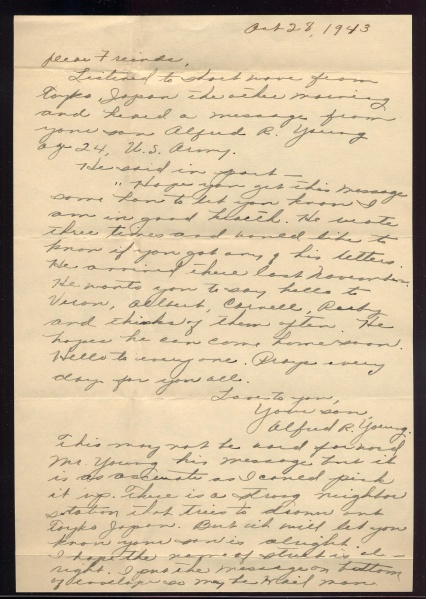 Oct 28, 1943
Dear Friends,
Listened to short wave from
Toyko Japan the other morning
and heard a message from
your son Alfred R. Young
age 24, U.S. Army.
He said in part —
"Hope you get this message
some how to let you know I
am in good health. He wrote
three times and would like to
know if you got any of his letters.
He arrived there last November.
He wants you to say hello to
Veron, Albert, Cornell,
and thinks of them often. He
hopes he can come home soon.
Hello to everyone. Prays every
day for you all.
Love to you,
Your son,
Alfred R. Young.
This may not be word for word
Mr. Young his message but it
is as accurate as I could pick
it up. There is a strong neighbor
station that tries to drown out
Toyko Japan. But it will let you
know your son is alright.
I hope the name of street is al-
right. I put the message on bottom
of envelope so may be mail man